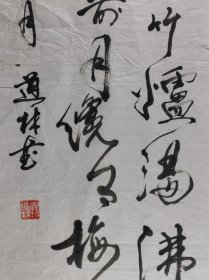 竹爐湯沸
前月纔有梅
月
道林書